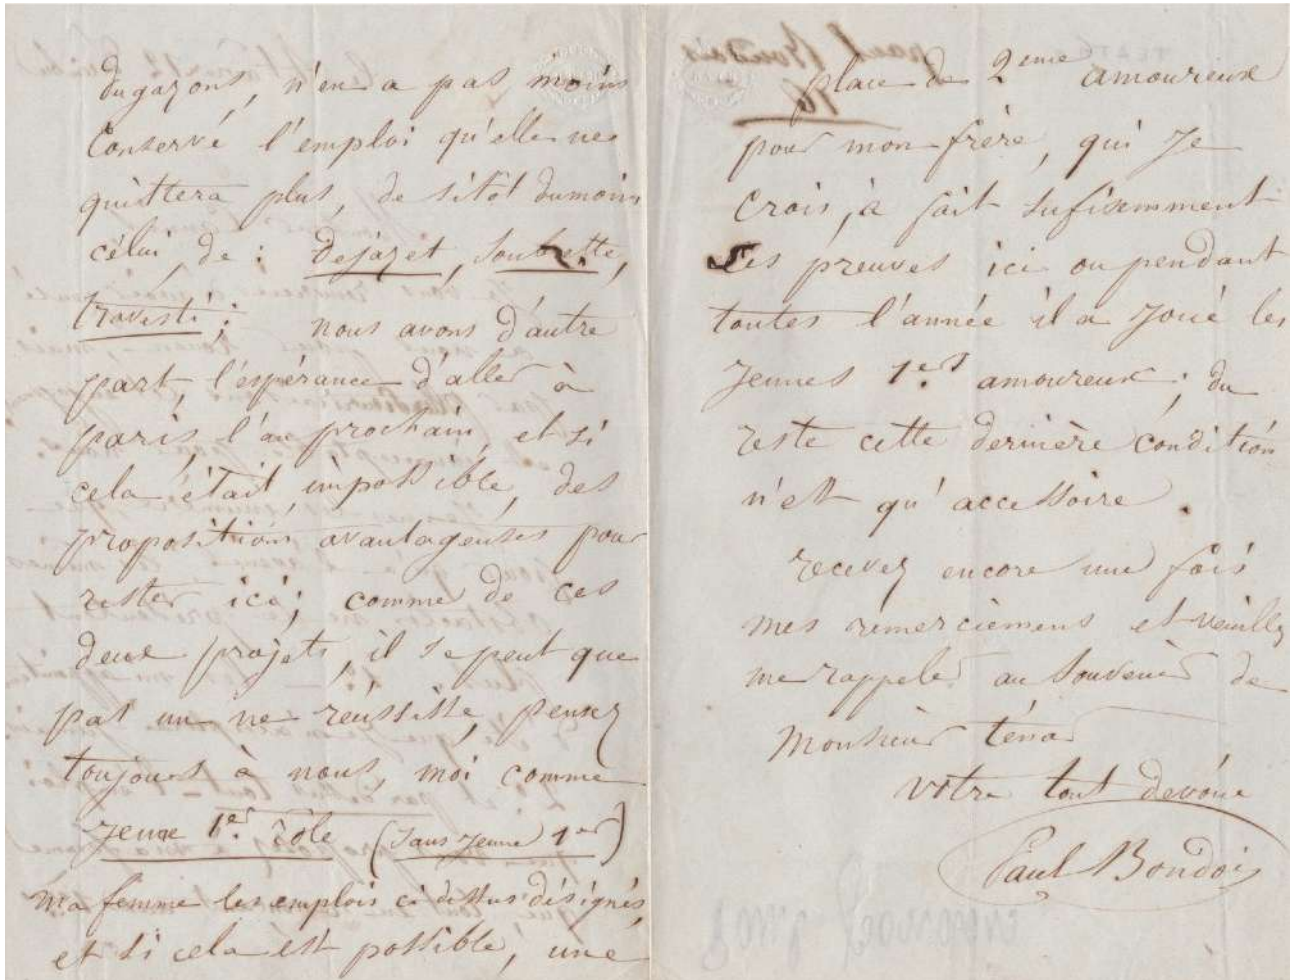 dugazons, n'en a pas moins
Conservé l'emploi qu'elle ne
quittera plus, de sitôt dumoins
célui de : Dejazet, Soubrette,
travesti; nous avons d'autre
part, l'espérance d'aller à
paris l'an prochain, et si
cela était impossible, des
propositions avantageuses pour
rester ici; comme de ces
deux projets, il se peut que
pas un ne réussisse, pensez
toujours à nous, moi comme
jeune 1er rôle (sans jeune 1er)
ma femme les emplois ci dessus désignés,
et si cela est possible, une
place de 2eme amoureux
pour mon frère, qui je
crois, à fait sufisemment
ses preuves ici ou pendant
toutes l'année il a joué les
jeunes 1ers amoureux; du
reste cette dernière condition
n'est qu'accessoire.
recevez encore une fois
mes remerciemens et veuillez
me rappeler au souvenir de
Monsieur ténar
votre tout dévoué
Paul Bondois